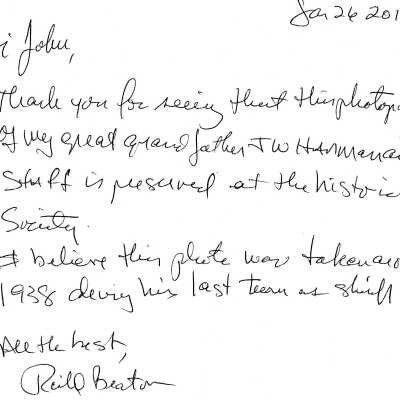 Jan 26 201
i John,
Thank you for seeing that this photop
of my great grandfather J W
Staff is preserved at the historic
Society.
I believe this photo was taken
1938 during his last term as
All the best,
Beaton